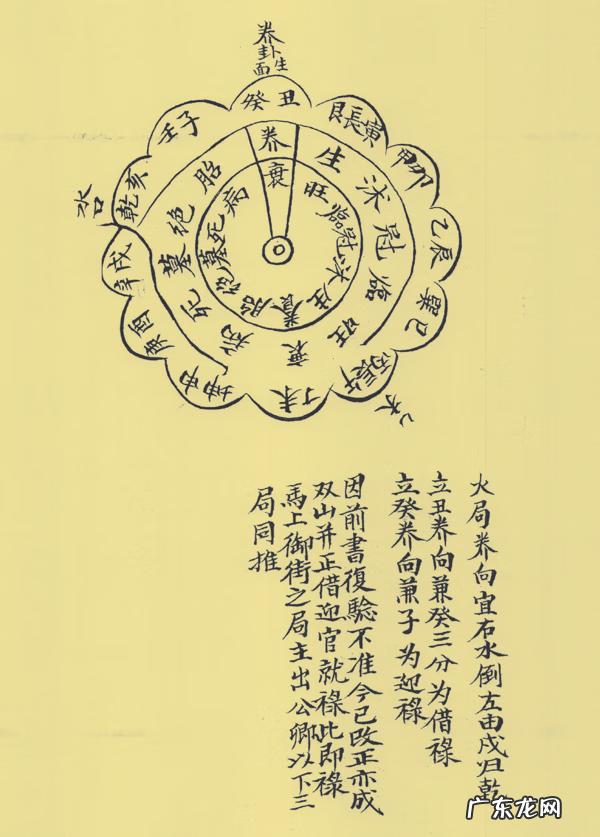 养
卦生
面
癸丑
艮長寅
甲卯
乙辰
巽巳
丙午
丁未
坤申
庚酉
辛戌
乾亥
壬子
水口
水
养
生
沐
冠
临
旺
衰
病
死
墓
绝
胎
衰
旺
临
冠
沐
生
養
胎
绝
墓
死
病
火局养向宜右水倒左由戌归乾
立丑养向兼癸三分为借禄
立癸养向兼子为迎禄
因前書復驗不准今已改正亦成
双山并正借迎官就禄此即禄
馬上御街之局主出公卿以下三
局同推
广东龙网